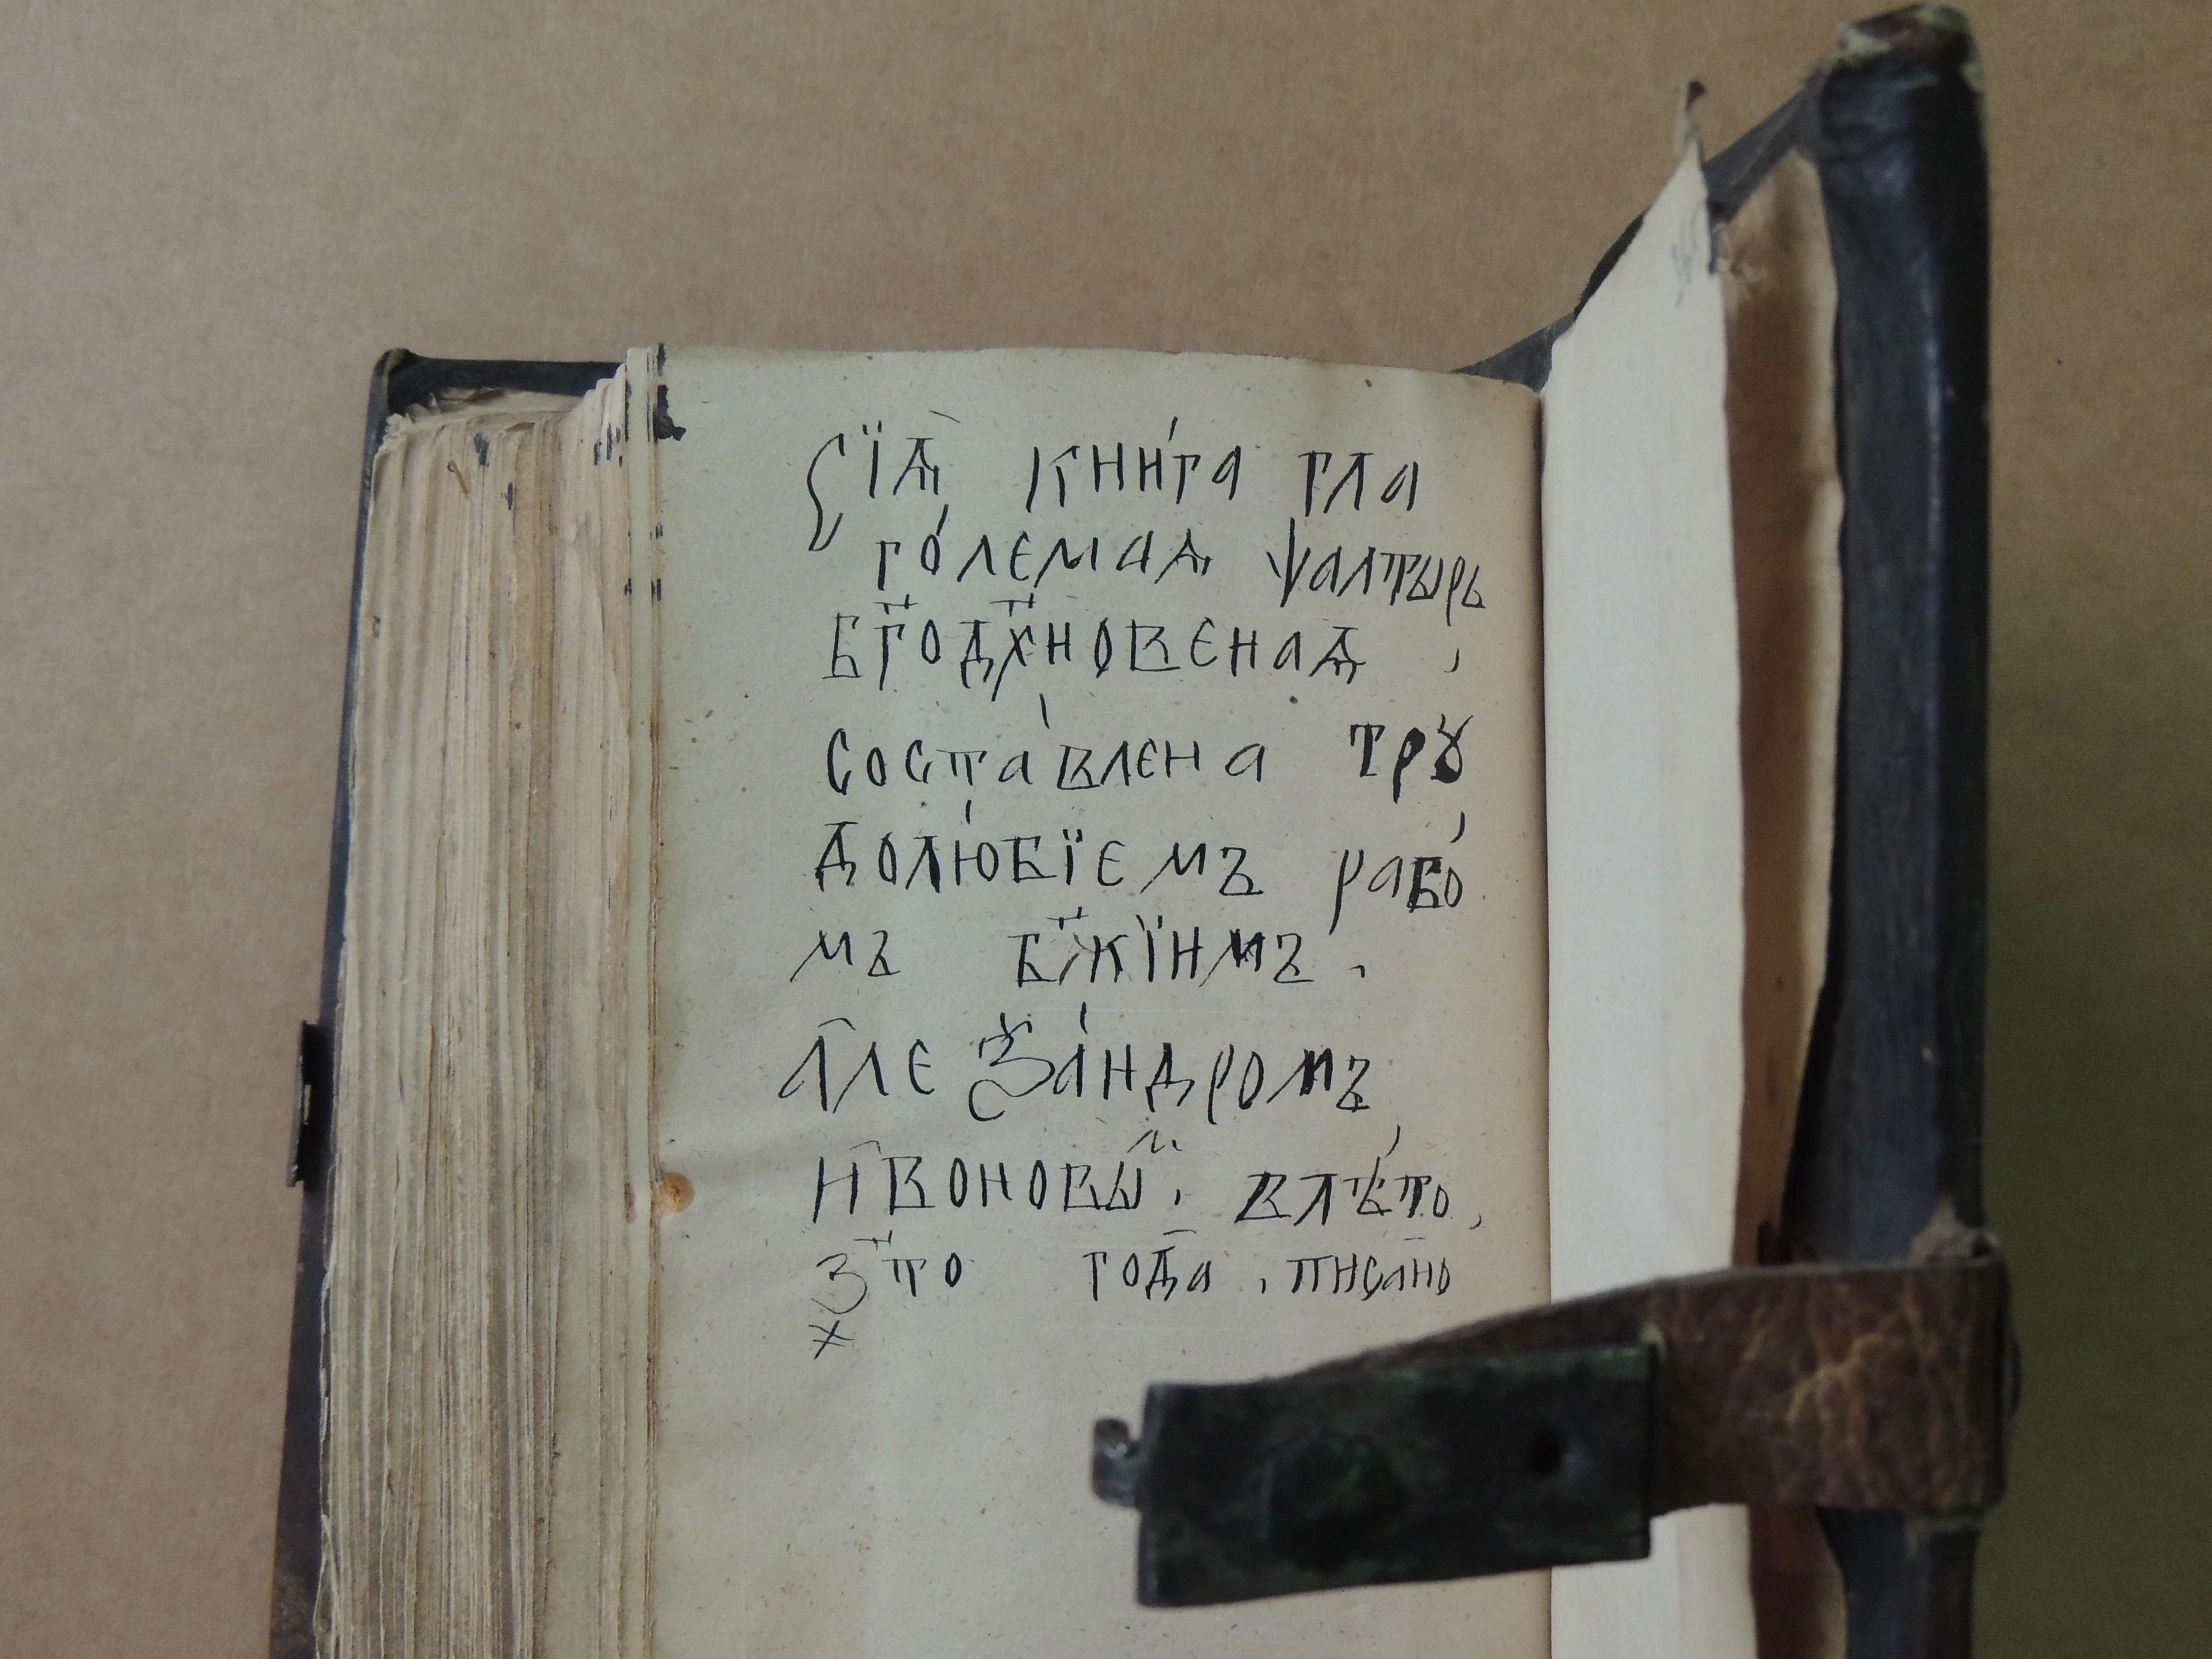 Сїѧ кни́га гла
го́лемаѧ ѱалтырь
Бг҃одх҃новенаѧ ,
соста́влена трꙋ
долю́бїемъ рабо́
мъ бж҃їимъ .
але ѯа́ндромъ
Ивоновый . влѣ́то ,
зт҃о года . писано
х